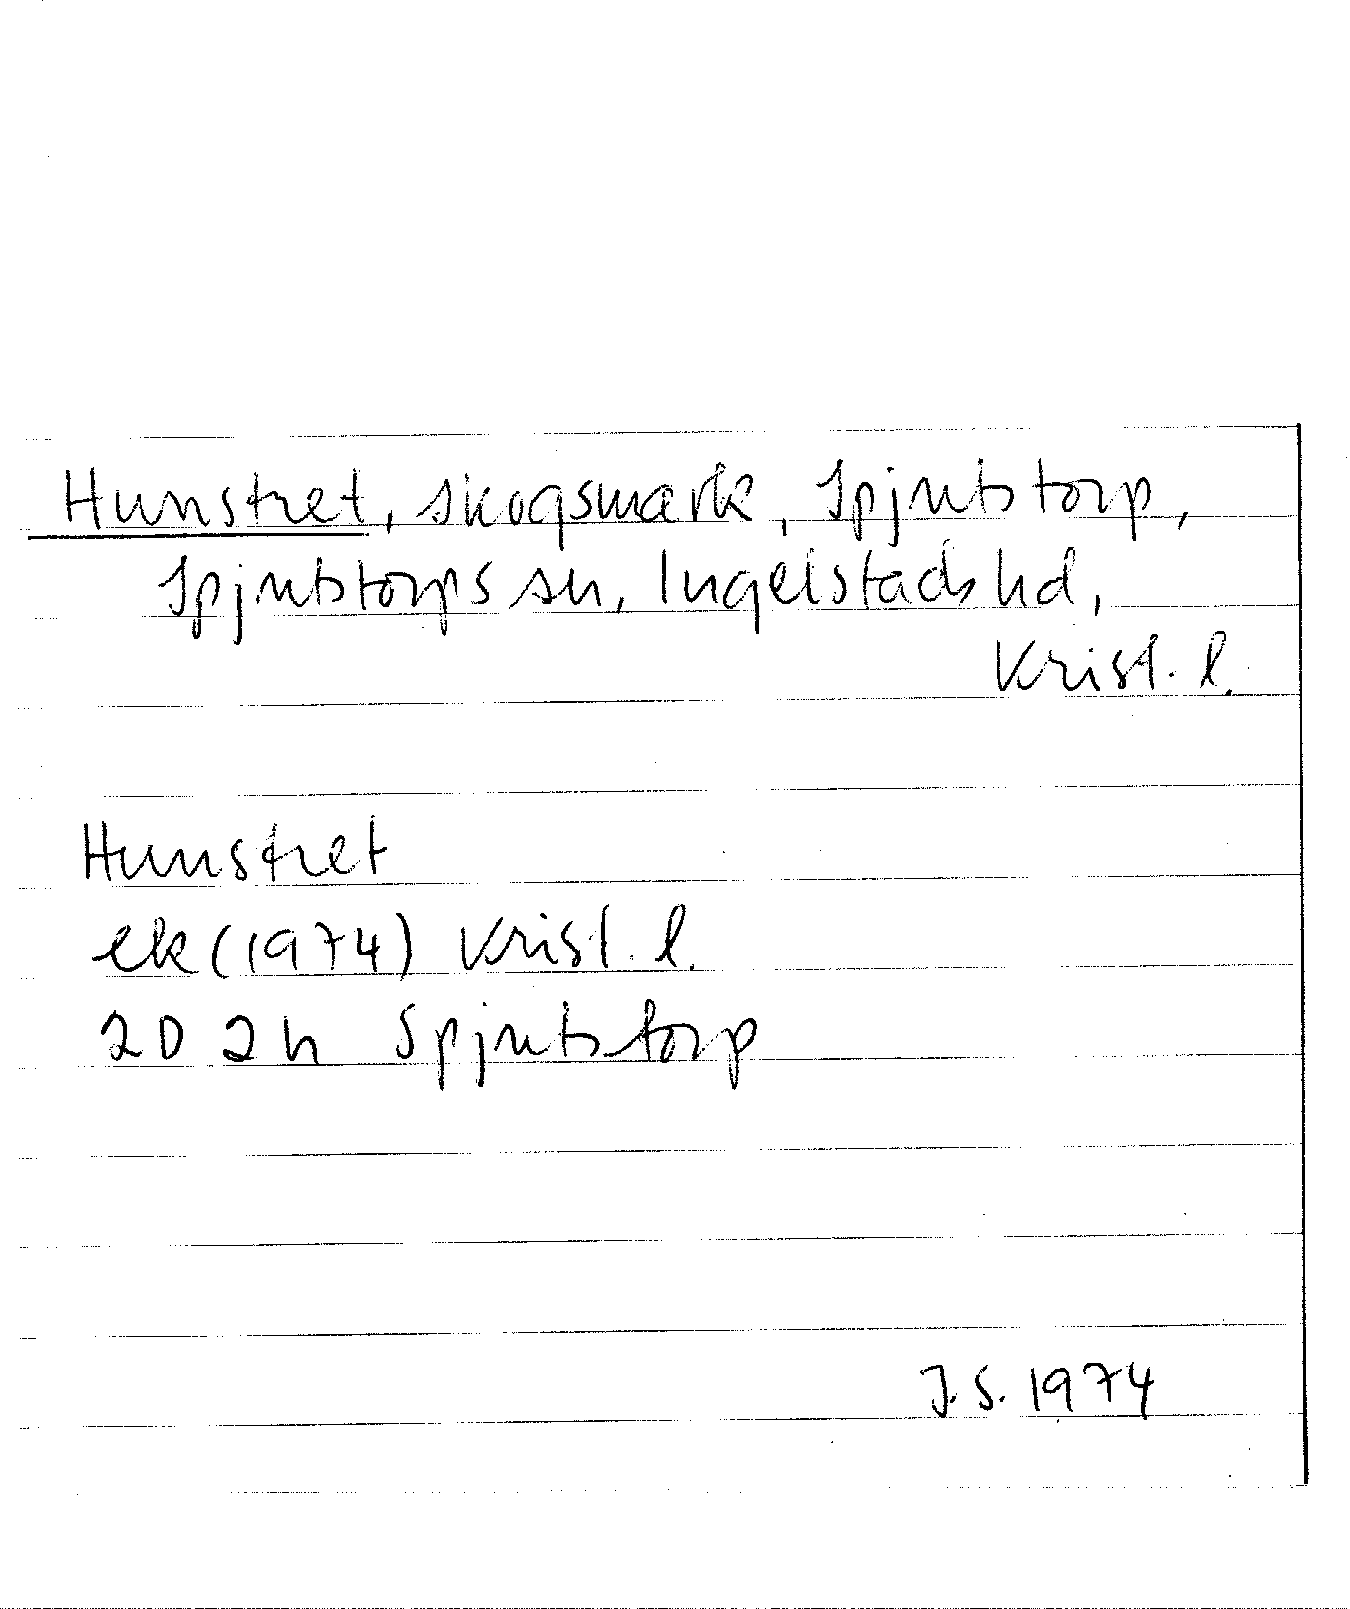 Hunstret, skogsmark, Spjutstorp,
Spjutstorps sn, Ingelstads hd,
Krist. l.
Hunstret
ek (1974) Krist. l.
2D 2h Spjutstorp
J.S. 1974